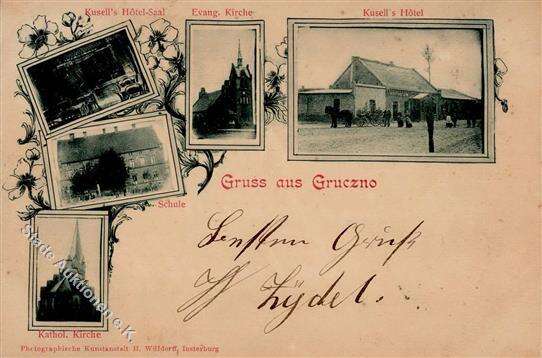 Kusell's Hôtel-Saal
Evang. Kirche
Kusell's Hôtel
Gruss aus Gruczno
Schule
Besten Gruß
Kathol. Kirche
Photographische Kunstanstalt H. Willdorff, Insterburg